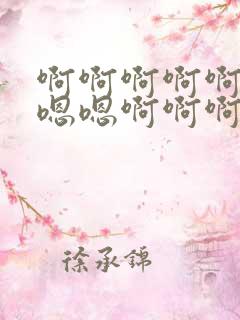 啊啊啊啊啊
嗯嗯啊啊啊
徐承锦